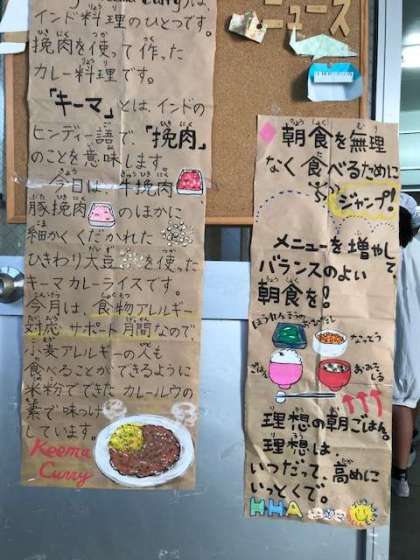 ニュース
インド料理のひとつです。
挽肉を使って作った
カレー料理です。
「キーマ」とは、インドの
ヒンディー語で、「挽肉」
のことを意味します。
今日は、牛挽肉
豚挽肉のほかに
細かくくだかれた
ひきわり大豆を使った
キーマカレーライスです。
今月は、食物アレルギー
対応サポート月間なので、
小麦アレルギーの人も
食べることができるように
米粉でできたカレールウの
素で味つけ
しています。
Keema
Curry
朝食を無理
なく食べるために
ジャンプ!
メニューを増やして
バランスのよい
朝食を!
ほうれんそうのおひたし
なっとう
ごはん
おみそしる
理想の朝ごはん。
理想は
いつだって、高めに
いっとくで。